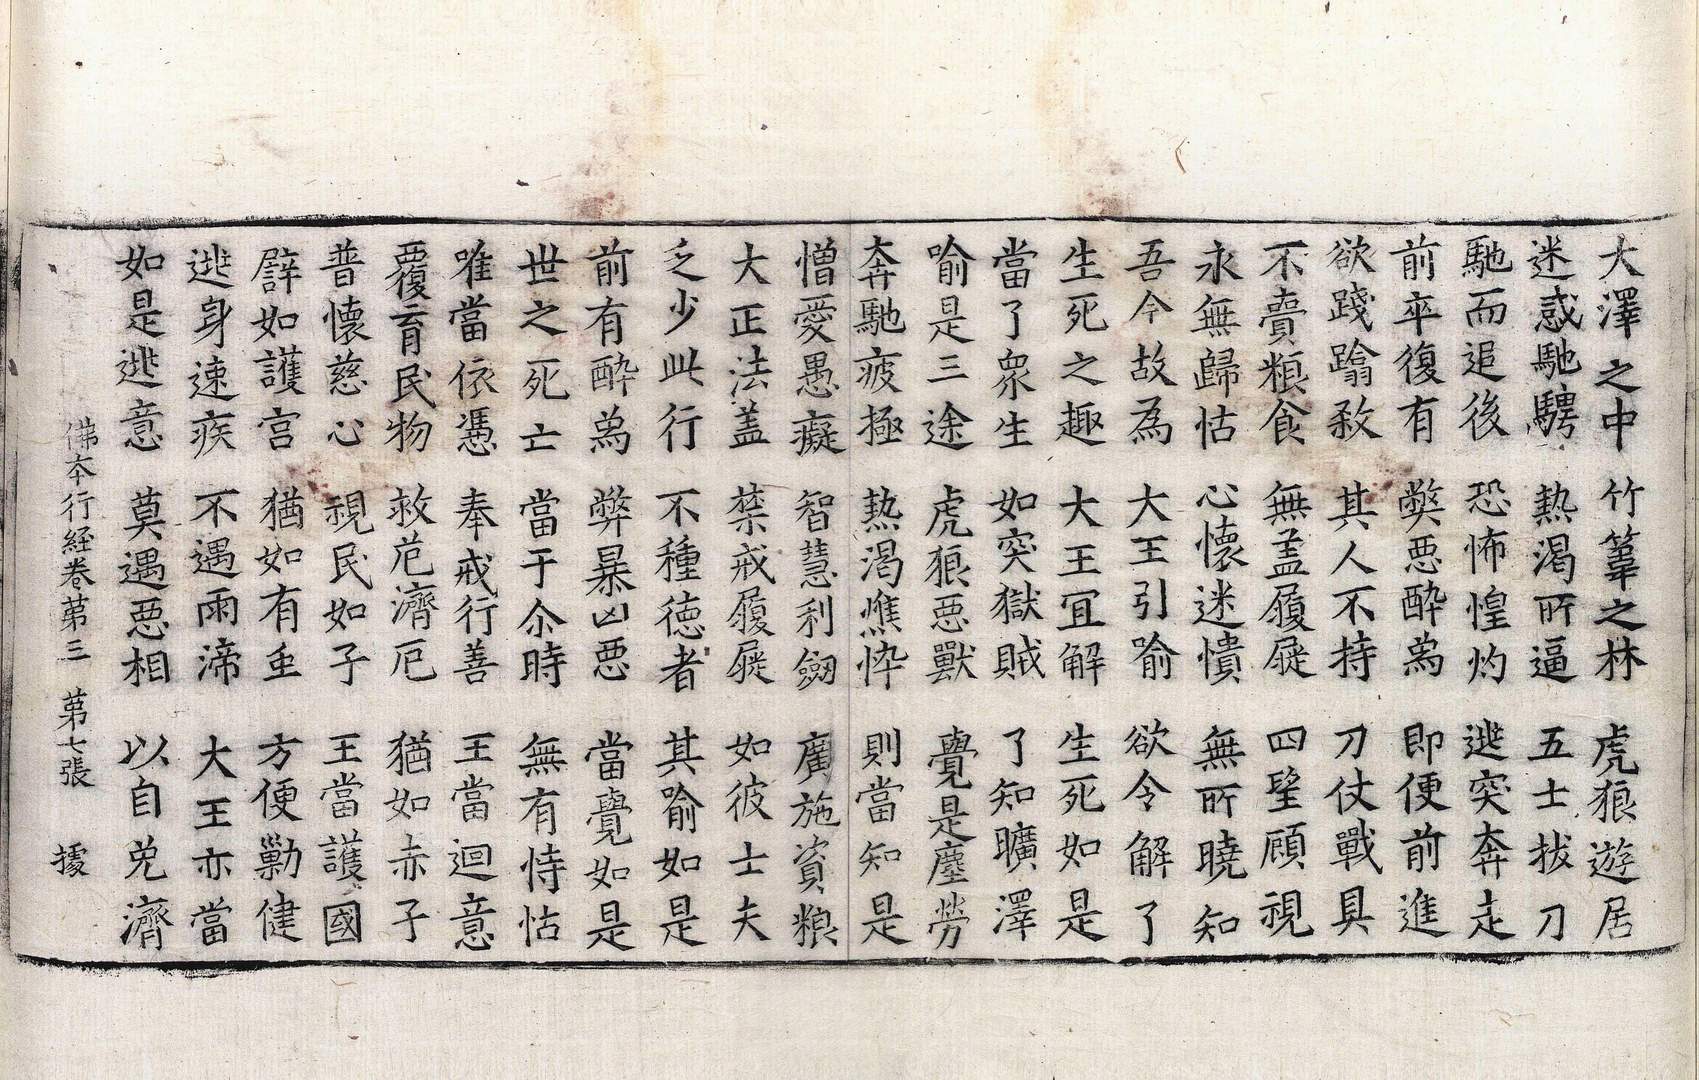 大澤之中 竹葦之林 虎狼遊居
迷惑馳騁 熱渴所逼 五士拔刀
馳而追後 恐怖惶灼 逃突奔走
前卒復有 弊惡醉為 即便前進
欲踐蹹敎 其人不持 刀仗戰具
不賷粮食 無盖履屣 四望顧視
永無歸怙 心懷迷憒 無所曉知
吾今故為 大王引喻 欲令解了
生死之趣 大王冝解 生死如是
當了眾生 如突獄賊 了知曠澤
喻是三途 虎狼惡獸 覺是塵勞
奔馳疲極 熱渴憔悴 則當知是
憎愛愚癡 智慧利劒 廣施資粮
大正法盖 禁戒履屣 如彼士夫
乏少此行 不種德者 其喻如是
前有醉為 弊暴凶惡 當覺如是
世之死亡 當于尒時 無有恃怙
唯當依憑 奉戒行善 王當迴意
覆育民物 救危濟厄 猶如赤子
普懷慈心 視民如子 王當護國
譬如護宮 猶如有重 方便勤健
逃身速疾 不遇雨渧 大王亦當
如是逃意 莫遇惡相 以自免濟
佛本行經卷第三 第七張 據